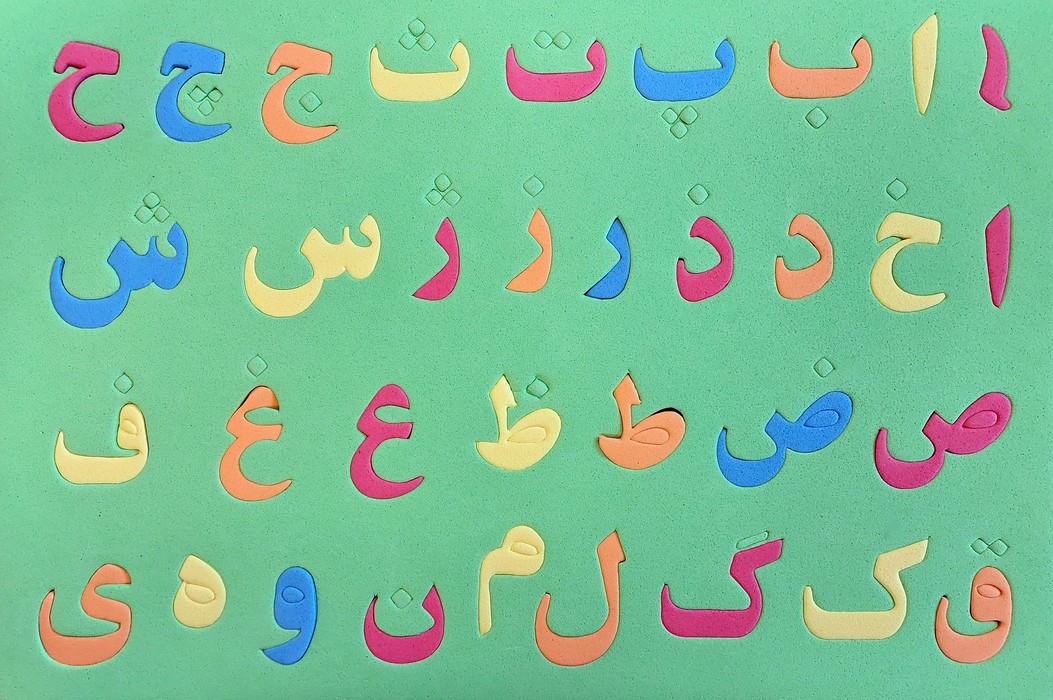 ا ا ب پ ت ث ج چ ح
ا خ د ذ ر ز ژ س ش
ص ض ط ظ ع غ ف
ق ک گ ل م ن و ه ی